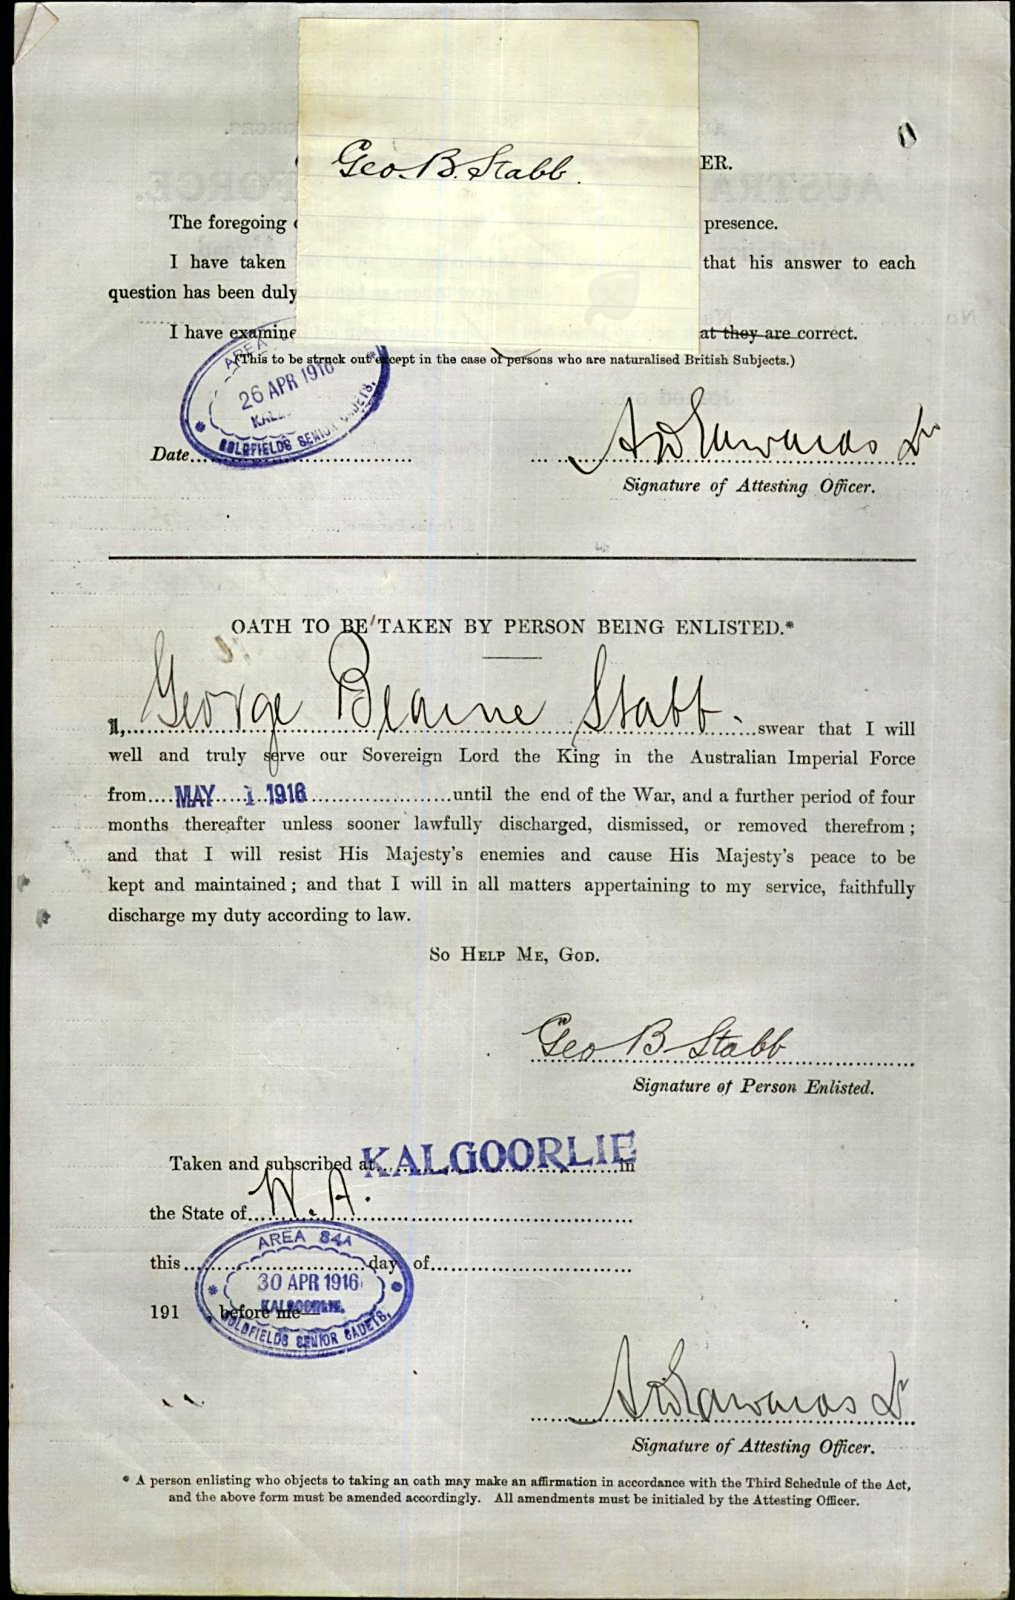 Geo. B. Stabb.
ER.
The foregoing presence.
I have taken that his answer to each
question has been duly
I have examine at they are correct.
(This to be struck out except in the case of persons who are naturalised British Subjects.)
AREA
26 APR 1916
KAL
GOLDFIELDS SENIOR CADETS.
Date
Signature of Attesting Officer.
OATH TO BE TAKEN BY PERSON BEING ENLISTED.*
I, George Blaine Stabb. swear that I will
well and truly serve our Sovereign Lord the King in the Australian Imperial Force
from MAY 1 1916 until the end of the War, and a further period of four
months thereafter unless sooner lawfully discharged, dismissed, or removed therefrom;
and that I will resist His Majesty's enemies and cause His Majesty's peace to be
kept and maintained; and that I will in all matters appertaining to my service, faithfully
discharge my duty according to law.
So Help Me, God.
Geo B Stabb
Signature of Person Enlisted.
Taken and subscribed at KALGOORLIE in
the State of W. A.
this day of
AREA 84A
30 APR 1916
KALGOORLIE.
GOLDFIELDS SENIOR CADETS.
191 before me
Signature of Attesting Officer.
* A person enlisting who objects to taking an oath may make an affirmation in accordance with the Third Schedule of the Act,
and the above form must be amended accordingly. All amendments must be initialed by the Attesting Officer.